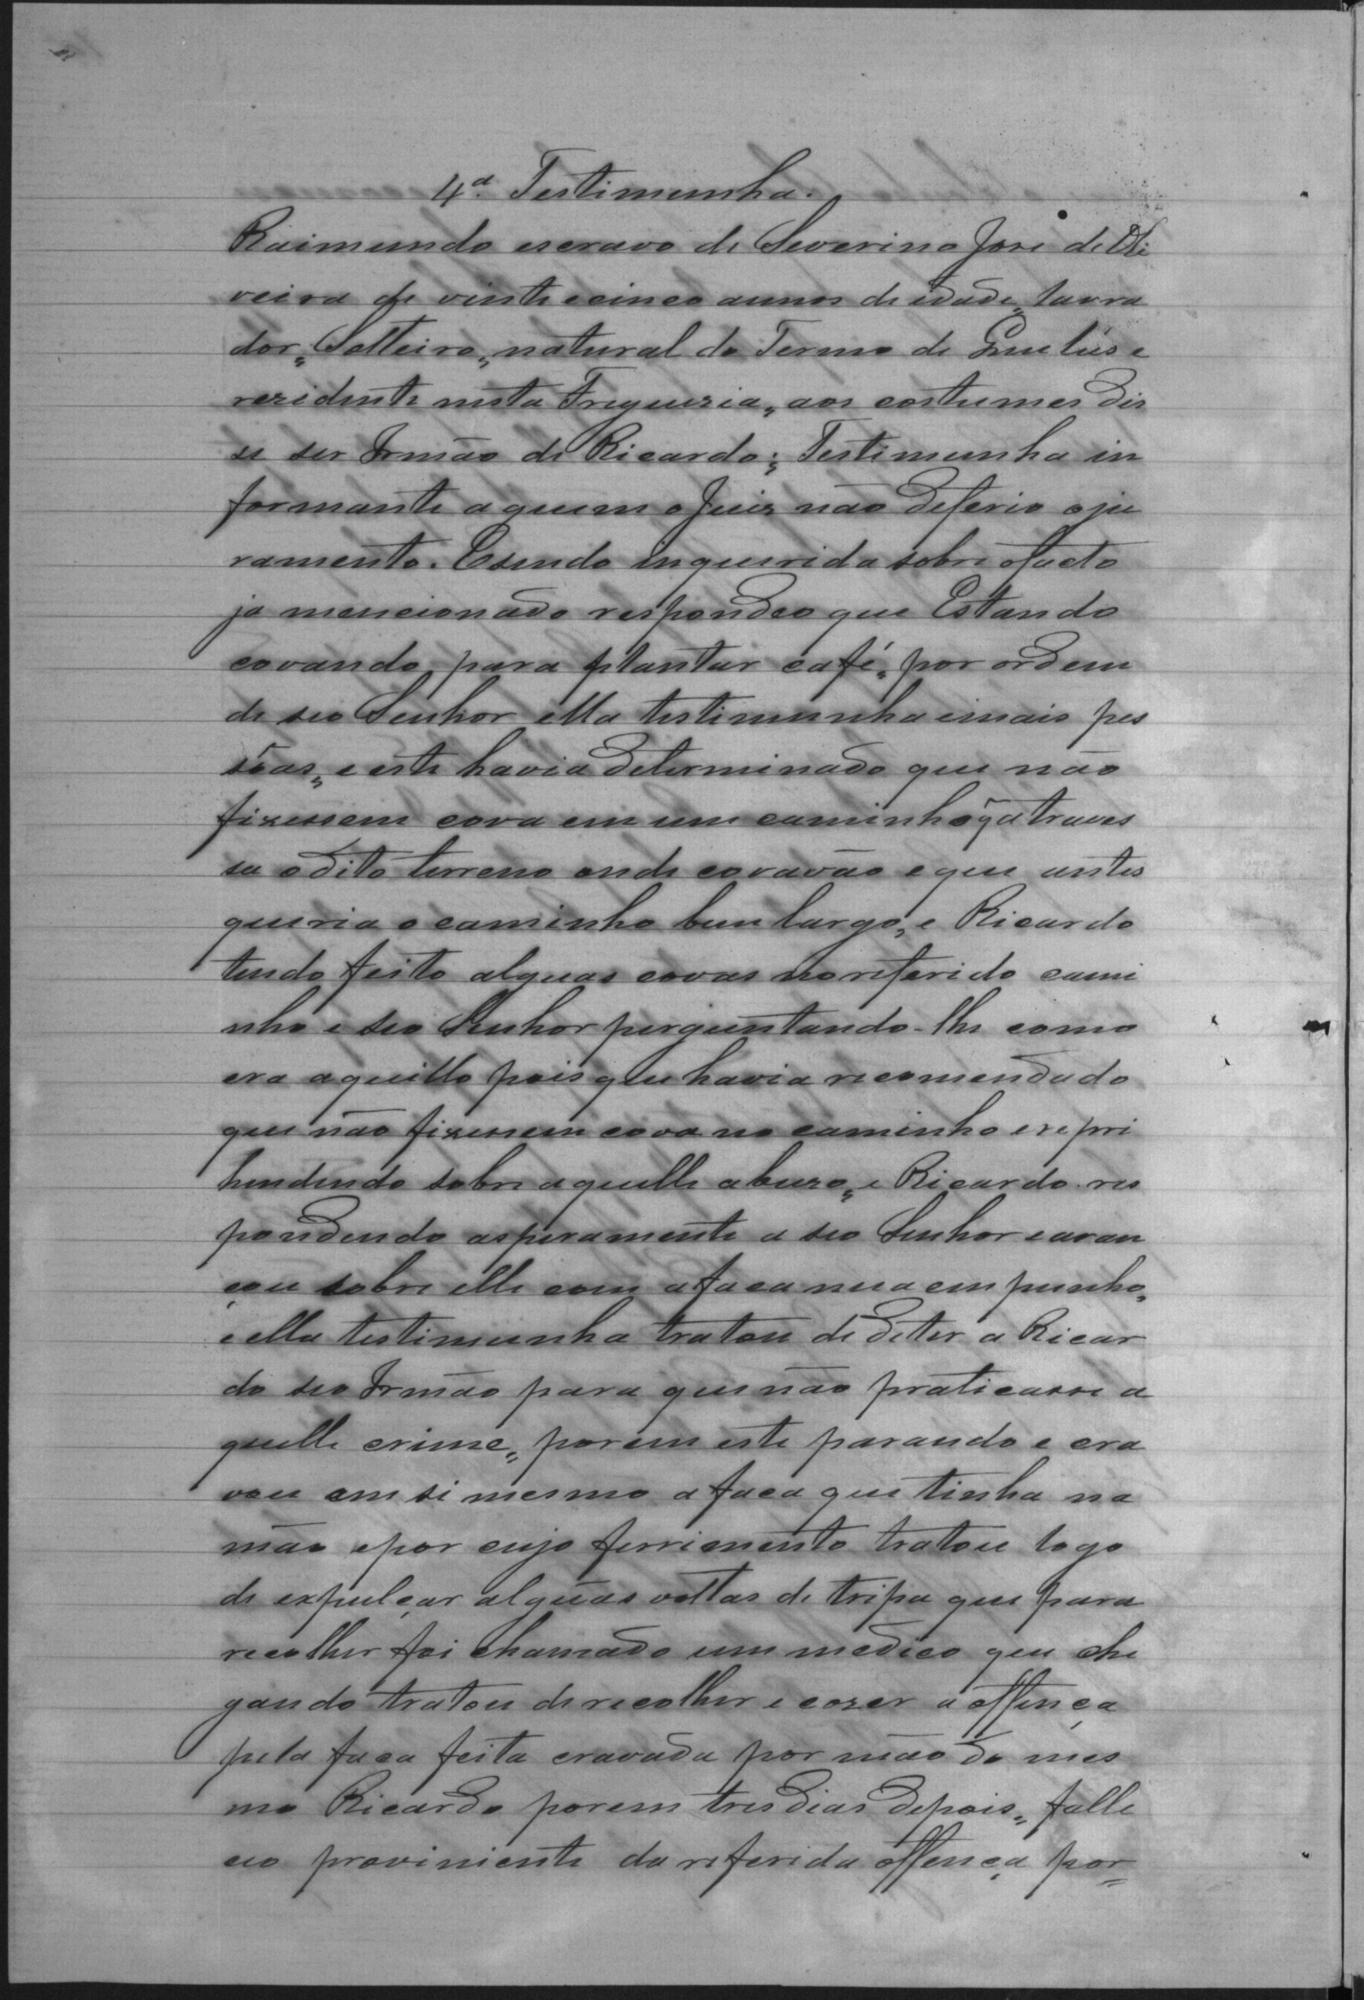 4ª Testimunha.
Raimundo escravo de Severino José de Oli
veira de vinte e cinco annos de idade, lavra
dor, Solteiro, natural do Termo de Queluis e
rezidente nesta Freguezia, aos costumes dis
se ser Irmão de Ricardo; Testimunha in
formante a quem o Juiz não deferio o ju
ramento. E sendo inquerida sobre o facto
ja mencionado respondeo que Estando
covando, para plantar café, por ordem
de seo Senhor ella testimunha e mais pes
sôas, e este havia determinado que não
fizessem cova em um caminho q̃ atraves
sa o dito terreno onde covavão e que antes
queria o caminho bem largo, e Ricardo
tendo feito alguas covas no referido cami
nho e seo Senhor perguntando-lhe como
era aquillo pois que havia recomendado
que não fizessem cova no caminho e repri
hendendo sobre aquelle abuzo, e Ricardo res
pondendo asperamente a seo Senhor e avan
çou sobre elle com a faca nua em punho,
e ella testimunha tratou de deter a Ricar
do seo Irmão para que não praticasse a
quelle crime, porem este parando e cra
vou em si mesmo a faca que tinha na
mão e por cujo ferrimento tratou logo
de expulçar alguãs voltas de tripa que para
recolher foi chamado um medico que che
gando tratou de recolher e cozer a offença
pela faca feita cravada por mão do mes
mo Ricardo porem tres dias depois, falle
ceo proviniente da referida offença por=